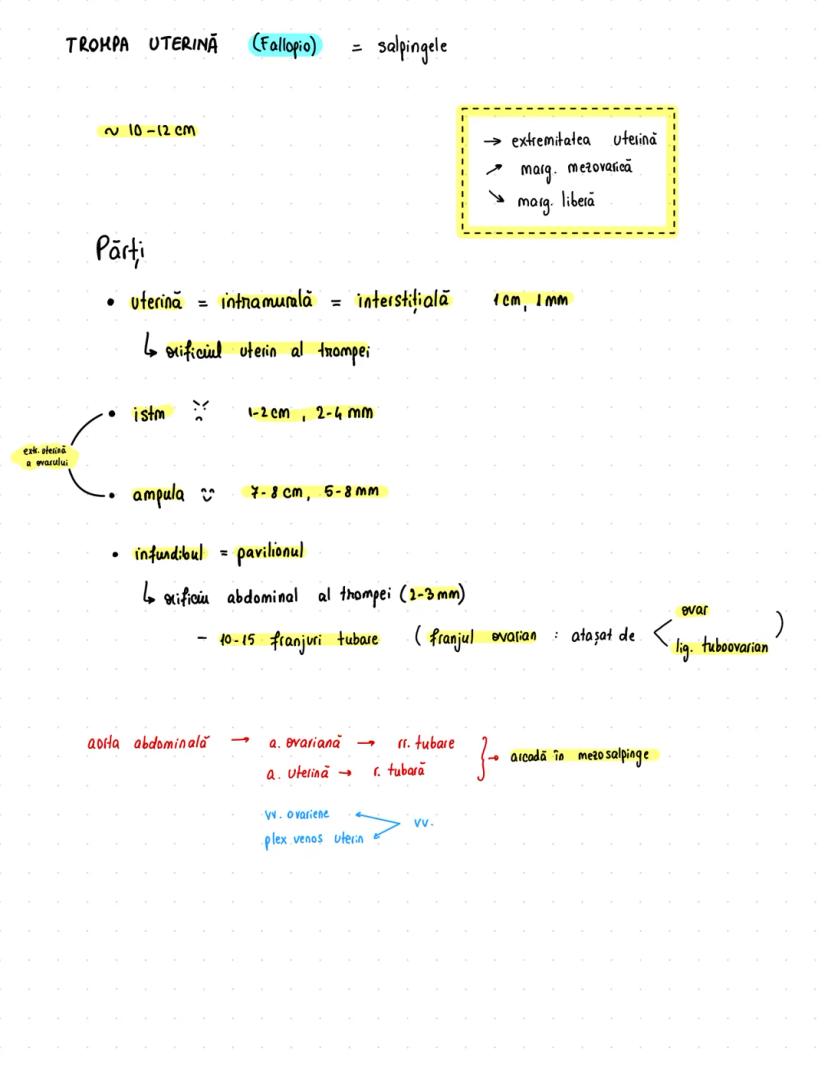 TROMPA UTERINĂ (Fallopio) = salpingele
~ 10-12 cm
→ extremitatea uterină
↗ marg. mezovarică
↘ marg. liberă
Părți
• uterină = intramurală = interstițială 1 cm, 1 mm
↳ orificiul uterin al trompei
• istm 1-2 cm, 2-4 mm
extr. uterină
a ovarului
• ampula 7-8 cm, 5-8 mm
• infundibul = pavilionul
↳ orificiu abdominal al trompei (2-3 mm)
- 10-15 franjuri tubare (franjul ovarian : atașat de < ovar
lig. tuboovarian )
aorta abdominală → a. ovariană → rr. tubare
a. uterină → r. tubară } → arcadă în mezosalpinge
vv. ovariene
plex venos uterin vv.